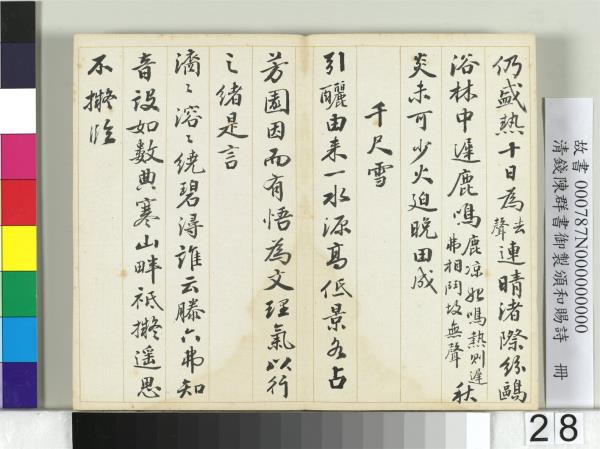 仍盛熱十日為去聲連晴渚際紛鷗
浴林中遲鹿鳴鹿凉始鳴熱則遲弗相無聲秋
炎未可少火迫晚田成
千尺雪
引釃由來一水源高低景各占
芳園因而有悟為文理氣以行
之緒是言
滴〻溶〻繞碧潯誰云滕六弗知
音設如數典寒山畔祗擬遥思
不擬臨
故書 000787N000000000
清錢陳群書御製頒和賜詩 冊
28